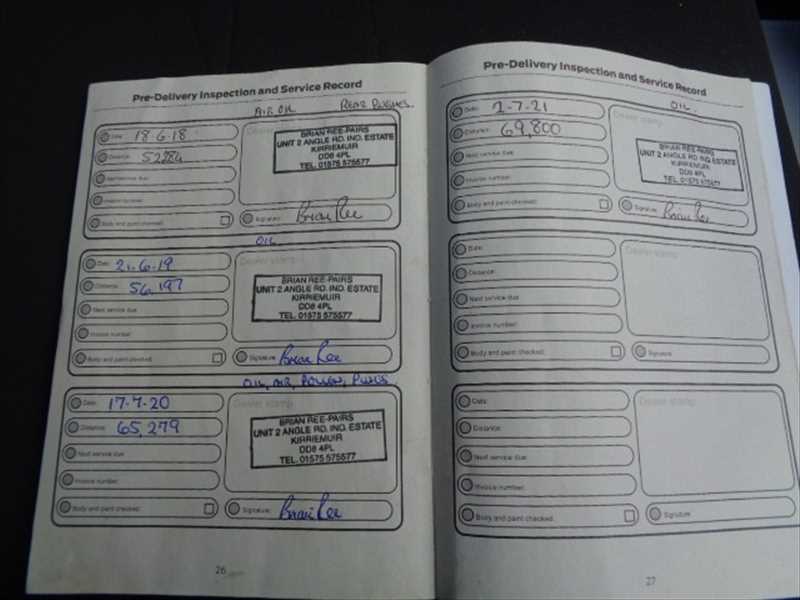 Pre-Delivery Inspection and Service Record
AIR, OIL
Date: 18·6·18
Dealer stamp
Distance: 52284
Next service due:
Invoice number:
Body and paint checked:
BRIAN REE-PAIRS
UNIT 2 ANGLE RD. IND. ESTATE
KIRRIEMUIR
DD8 4PL
TEL. 01575 575577
Signature: Brian Ree
OIL
Date: 21·6·19
Dealer stamp
Distance: 56,197
Next service due
Invoice number:
Body and paint checked:
BRIAN REE-PAIRS
UNIT 2 ANGLE RD. IND. ESTATE
KIRRIEMUIR
DD8 4PL
TEL. 01575 575577
Signature: Brian Ree
OIL, AIR, POLLEN, PLUGS
Date: 17·7·20
Dealer stamp
Distance: 65,279
Next service due
Invoice number:
Body and paint checked:
BRIAN REE-PAIRS
UNIT 2 ANGLE RD. IND. ESTATE
KIRRIEMUIR
DD8 4PL
TEL. 01575 575577
Signature: Brian Ree
26
Pre-Delivery Inspection and Service Record
OIL
Date: 2·7·21
Dealer stamp
Distance: 69,800
Next service due
Invoice number:
Body and paint checked:
BRIAN REE-PAIRS
UNIT 2 ANGLE RD. IND. ESTATE
KIRRIEMUIR
DD8 4PL
TEL. 01575 575577
Signature: Brian Ree
Date:
Dealer stamp
Distance:
Next service due
Invoice number:
Body and paint checked:
Signature
Date:
Dealer stamp
Distance:
Next service due
Invoice number:
Body and paint checked:
Signature
27